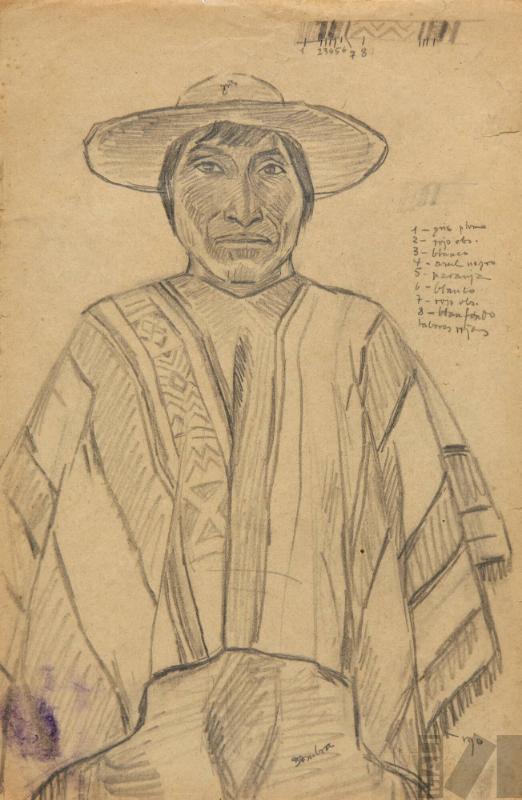 1 2 3 4 5 6 7 8
gris
1 - gris plomo
2 - rojo obs.
3 - blanco
4 - azul negro
5 - naranja
6 - blanco
7 - rojo obs.
8 - blanfondo
labores rojas
sombra
rojo